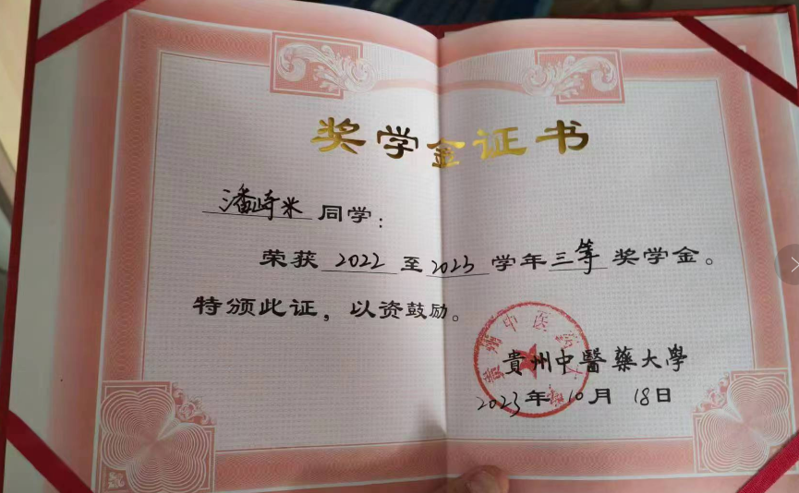 奖学金证书
潘崎米 同学：
荣获 2022 至 2023 学年 三等 奖学金。
特颁此证，以资鼓励。
貴州中醫藥大學
2023年 10月 18日